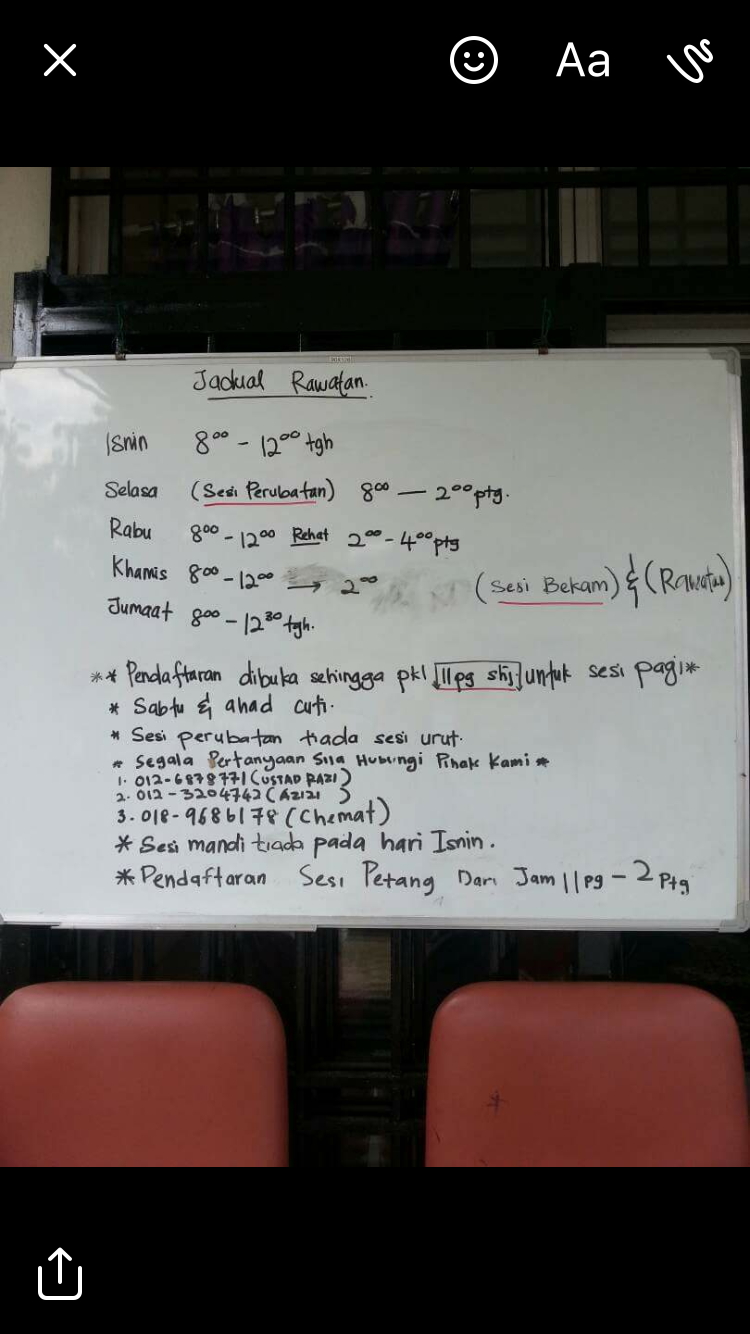 Aa
Jadual Rawatan.
Isnin 8⁰⁰ - 12⁰⁰ tgh
Selasa (Sesi Perubatan) 8⁰⁰ — 2⁰⁰ ptg.
Rabu 8⁰⁰ - 12⁰⁰ Rehat 2⁰⁰ - 4⁰⁰ ptg
Khamis 8⁰⁰ - 12⁰⁰ → 2⁰⁰ (Sesi Bekam) & (Rawatan)
Jumaat 8⁰⁰ - 12³⁰ tgh.
** Pendaftaran dibuka sehingga pkl 11pg shj untuk sesi pagi*
* Sabtu & ahad cuti.
* Sesi perubatan tiada sesi urut.
* Segala Pertanyaan Sila Hubungi Pihak Kami *
1. 012-6878771 (USTAD RAZI)
2. 012-3204742 (AZIZI)
3. 018-9686178 (Chemat)
* Sesi mandi tiada pada hari Isnin.
* Pendaftaran Sesi Petang Dari Jam 11pg - 2 Ptg